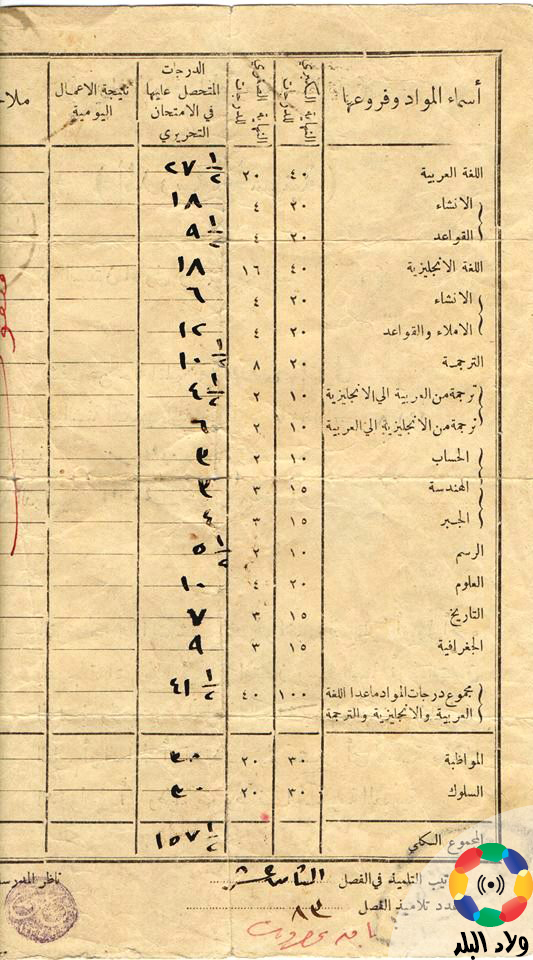 أسماء المواد وفروعها | النهاية الكبرى للدرجات | النهاية الصغرى للدرجات | الدرجات المتحصل عليها في الامتحان التحريري | نتيجة الاعمال اليومية
اللغة العربية ٤٠ ٢٠ ٢٧ ١/٢
الانشاء ٢٠ ٤ ١٨
القواعد ٢٠ ٤ ٩ ١/٢
اللغة الانجليزية ٤٠ ١٦ ١٨
الانشاء ٢٠ ٤ ٦
الاملاء والقواعد ٢٠ ٤ ١٢
الترجمة ٢٠ ٨ ١٠ ١/٢
ترجمة من العربية الى الانجليزية ١٠ ٢ ٤ ١/٢
ترجمة من الانجليزية الى العربية ١٠ ٢
الحساب ١٠ ٢ ٣
الهندسة ١٥ ٣ ٣
الجبر ١٥ ٣ ٤
الرسم ١٠ ٢ ٥ ١/٢
العلوم ٢٠ ٤ ١٠
التاريخ ١٥ ٣ ٧
الجغرافية ١٥ ٣ ٩
مجموع درجات المواد ماعدا اللغة
العربية والانجليزية والترجمة ١٠٠ ٤٠ ٤١ ١/٢
المواظبة ٣٠ ٢٠ ٣٠
السلوك ٣٠ ٢٠ ٣٠
المجموع الكلي ١٥٧ ١/٢
تيب التلميذ في الفصل
دد تلاميذ الفصل ٨٣
ناظر المدرسة
ولاد البلد